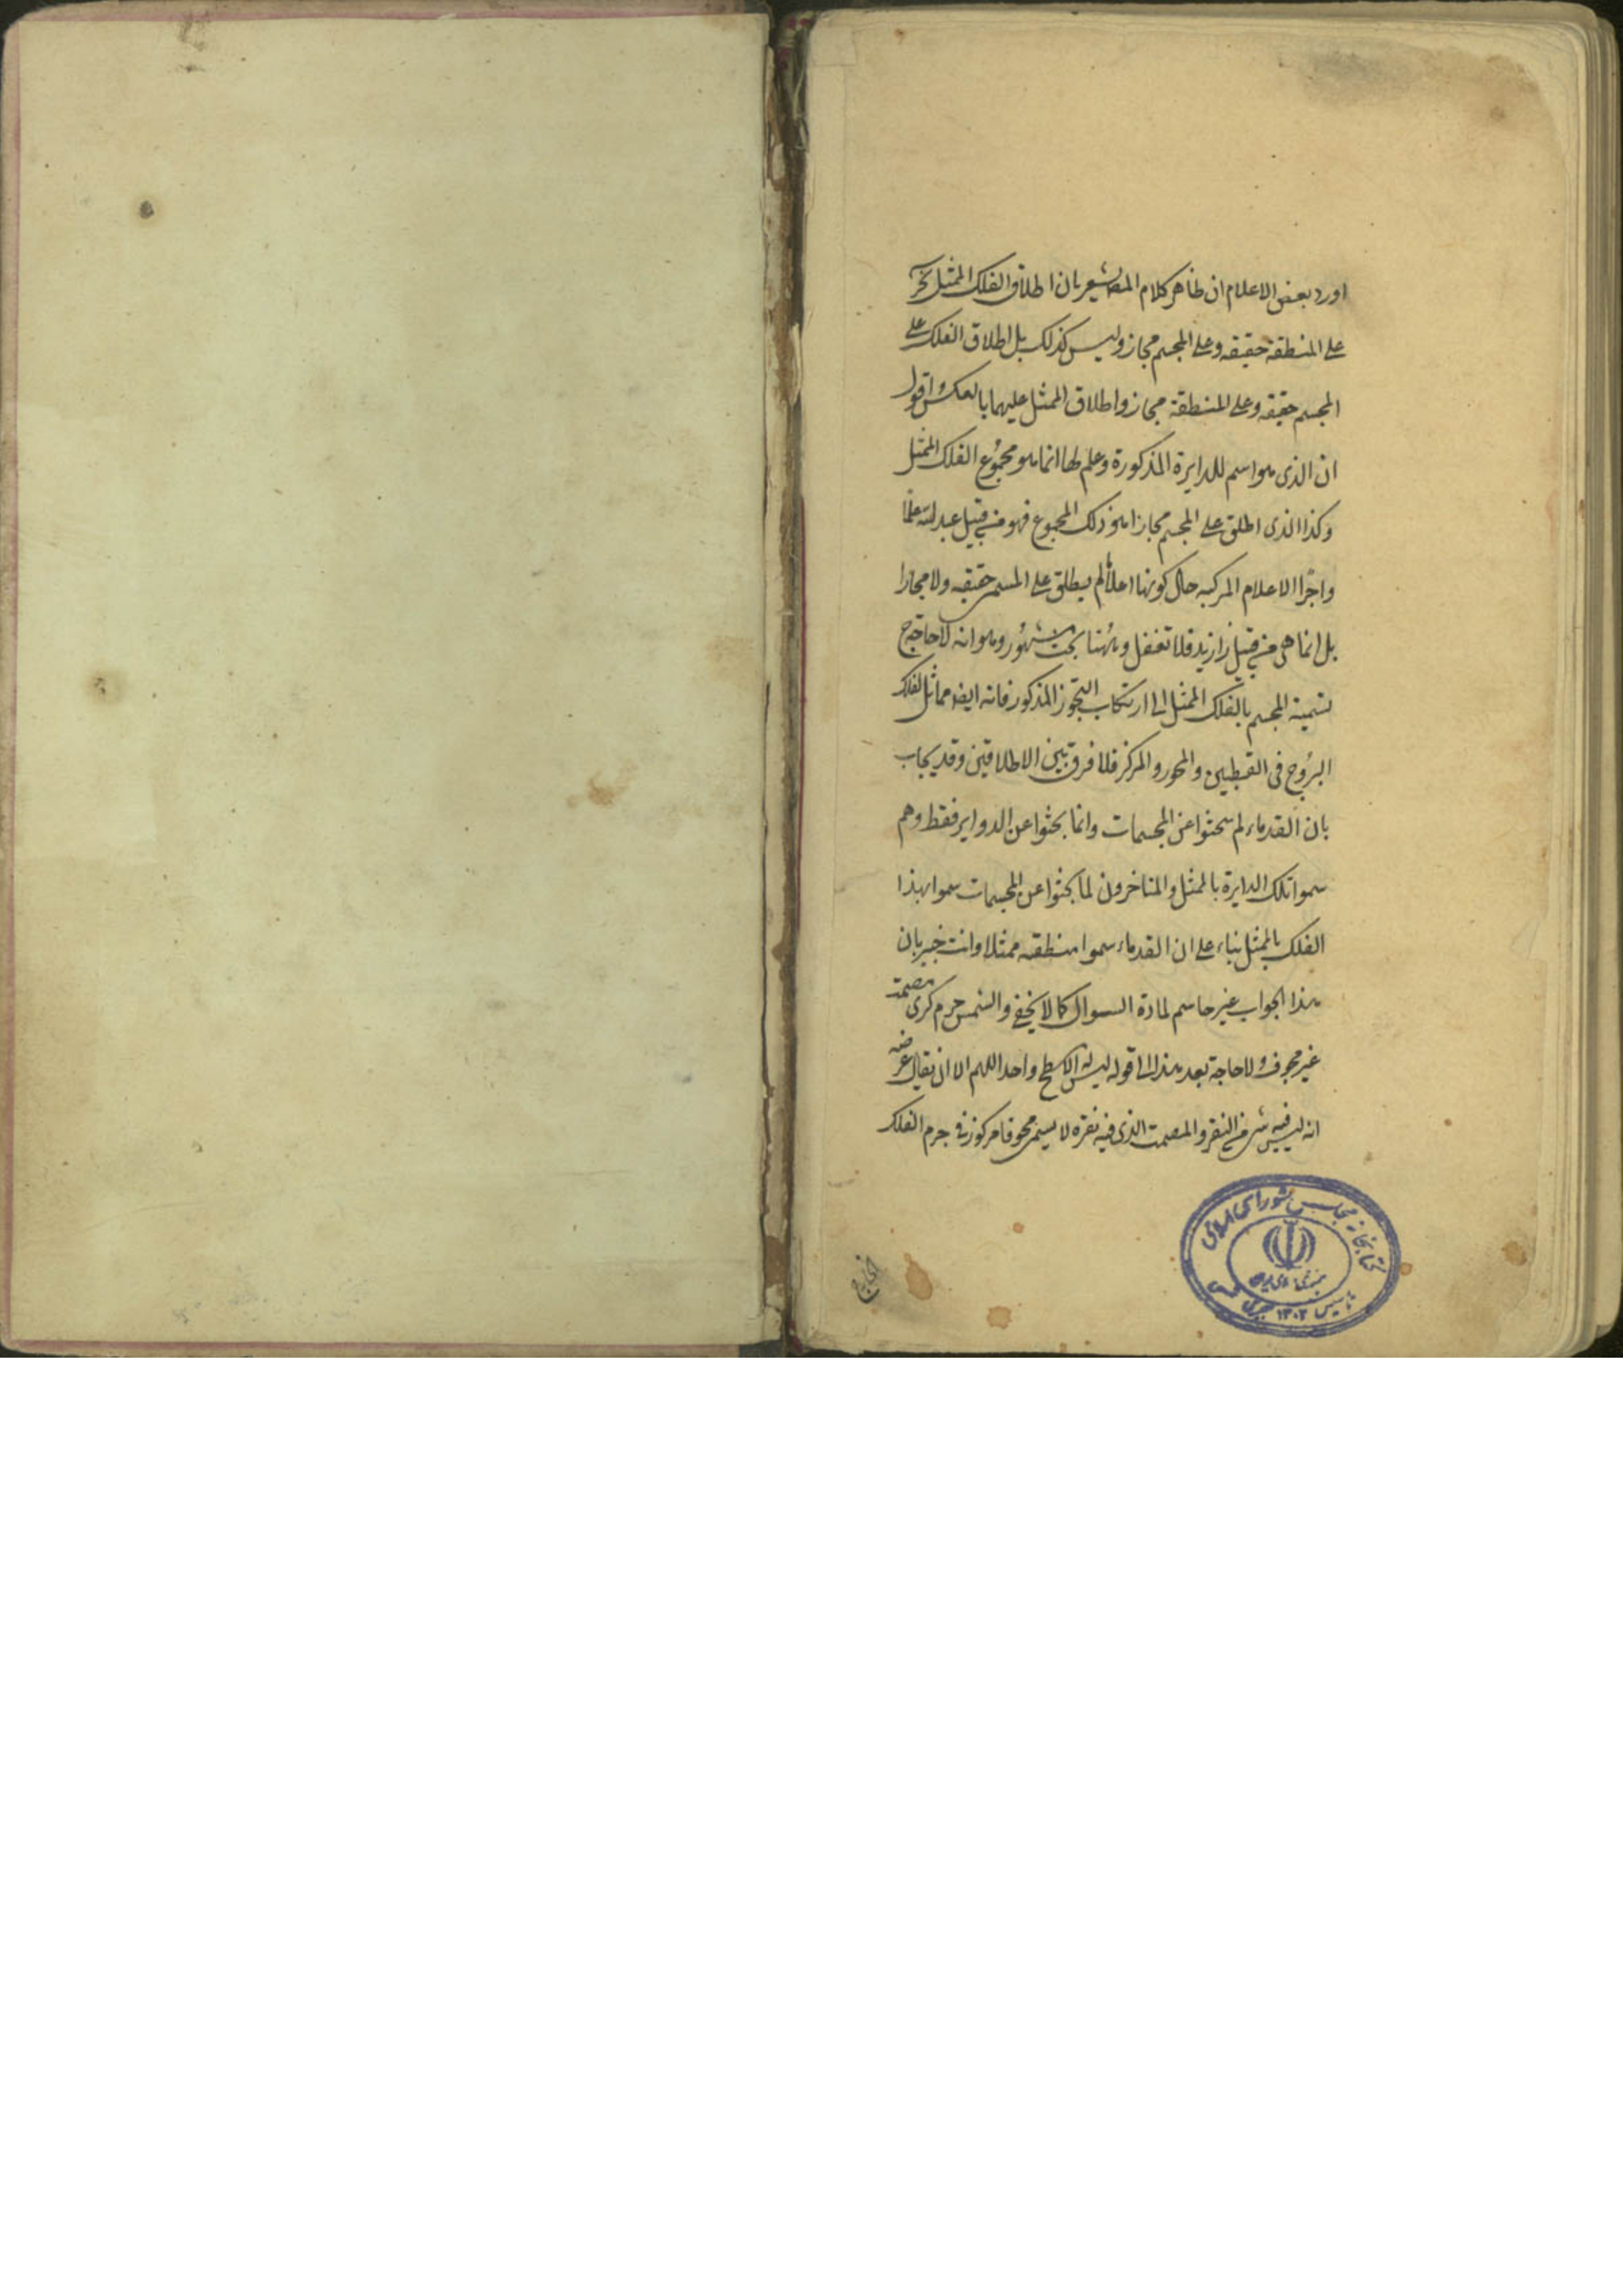 اورد بعض الاعلام ان ظاهر كلام المصـ يشعر بان اطلاق الفلك الممثل
على المنطقة حقيقه وعلى المجسم مجاز وليس كذلك بل اطلاق الفلك على
المجسم حقيقه وعلى المنطقة مجاز واطلاق الممثل عليهما بالعكس واقول
ان الذى هو اسم للدايرة المذكورة وعلم لها انما هو مجموع الفلك الممثل
وكذا الذى اطلق على المجسم مجازا هو ذلك المجموع فهو من قبيل عبد الله علما
واجزا الاعلام المركبه حال كونها اعلاما لم يطلق على المسمى حقيقه ولا مجازا
بل انما هى من قبيل زا زيد فلا تغفل وههنا بحث مشهور وهو انه لا حاجة فى
تسمية المجسم بالفلك الممثل الى ارتكاب التجوز المذكور فانه ايضا مماثل لفلك
البروج فى القطبين والمحور والمركز فلا فرق بين الاطلاقين وقد يجاب
بان القدماء لم يبحثوا عن المجسمات وانما بحثوا عن الدواير فقط وهم
سموا تلك الدايرة بالممثل والمتاخرون لما بحثوا عن المجسمات سموا هذا
الفلك بالممثل بناء على ان القدماء سموا منطقته ممثلا وانت خبير بان
هذا الجواب غير حاسم لمادة السوال كما لا يخفى والشمس جرم كرى مصمت
غير مجوف ولا حاجة بعد هذا الى قوله ليس له الا سطح واحد اللهم الا ان يقال غرضه
انه ليس فيه شى من النقر والمصمت الذى فيه نقرة لا يسمى مجوفا مركوز فى جرم الفلك
خارج
كتابخانه مجلس شوراى اسلامى
تاسيس ۱۳۰۲ هجرى شمسى